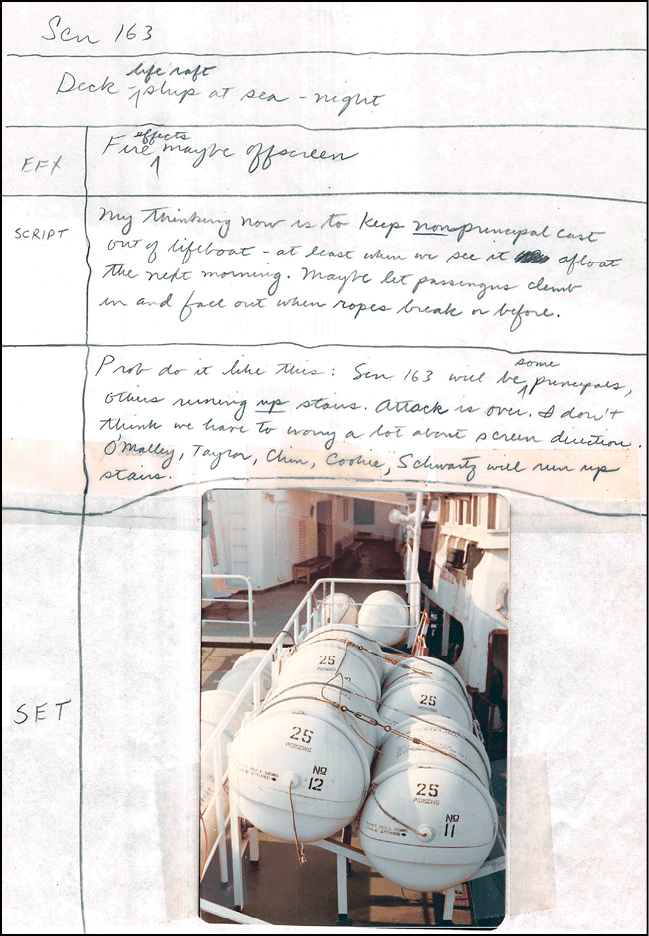 Scn 163
life raft
Deck - ship at sea - night
effects
EFX Fire maybe offscreen
SCRIPT My thinking now is to keep nonprincipal cast
out of lifeboat - at least when we see it afloat
the next morning. Maybe let passengers climb
in and fall out when ropes break or before.
some
Prob do it like this: Scn 163 will be principals,
others running up stairs. Attack is over. I don't
think we have to worry a lot about screen direction.
O'Malley, Taylor, Chin, Cookie, Schwartz will run up
stairs.
SET
25
25
25
PERSONS
No
12
25
PERSONS
No
11